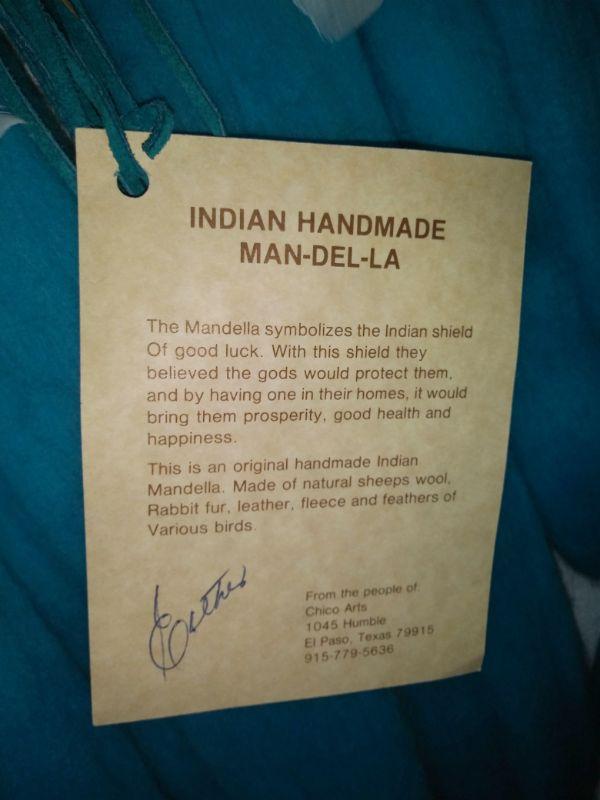 INDIAN HANDMADE
MAN-DEL-LA
The Mandella symbolizes the Indian shield
Of good luck. With this shield they
believed the gods would protect them,
and by having one in their homes, it would
bring them prosperity, good health and
happiness.
This is an original handmade Indian
Mandella. Made of natural sheeps wool,
Rabbit fur, leather, fleece and feathers of
Various birds.
From the people of:
Chico Arts
1045 Humble
El Paso, Texas 79915
915-779-5636